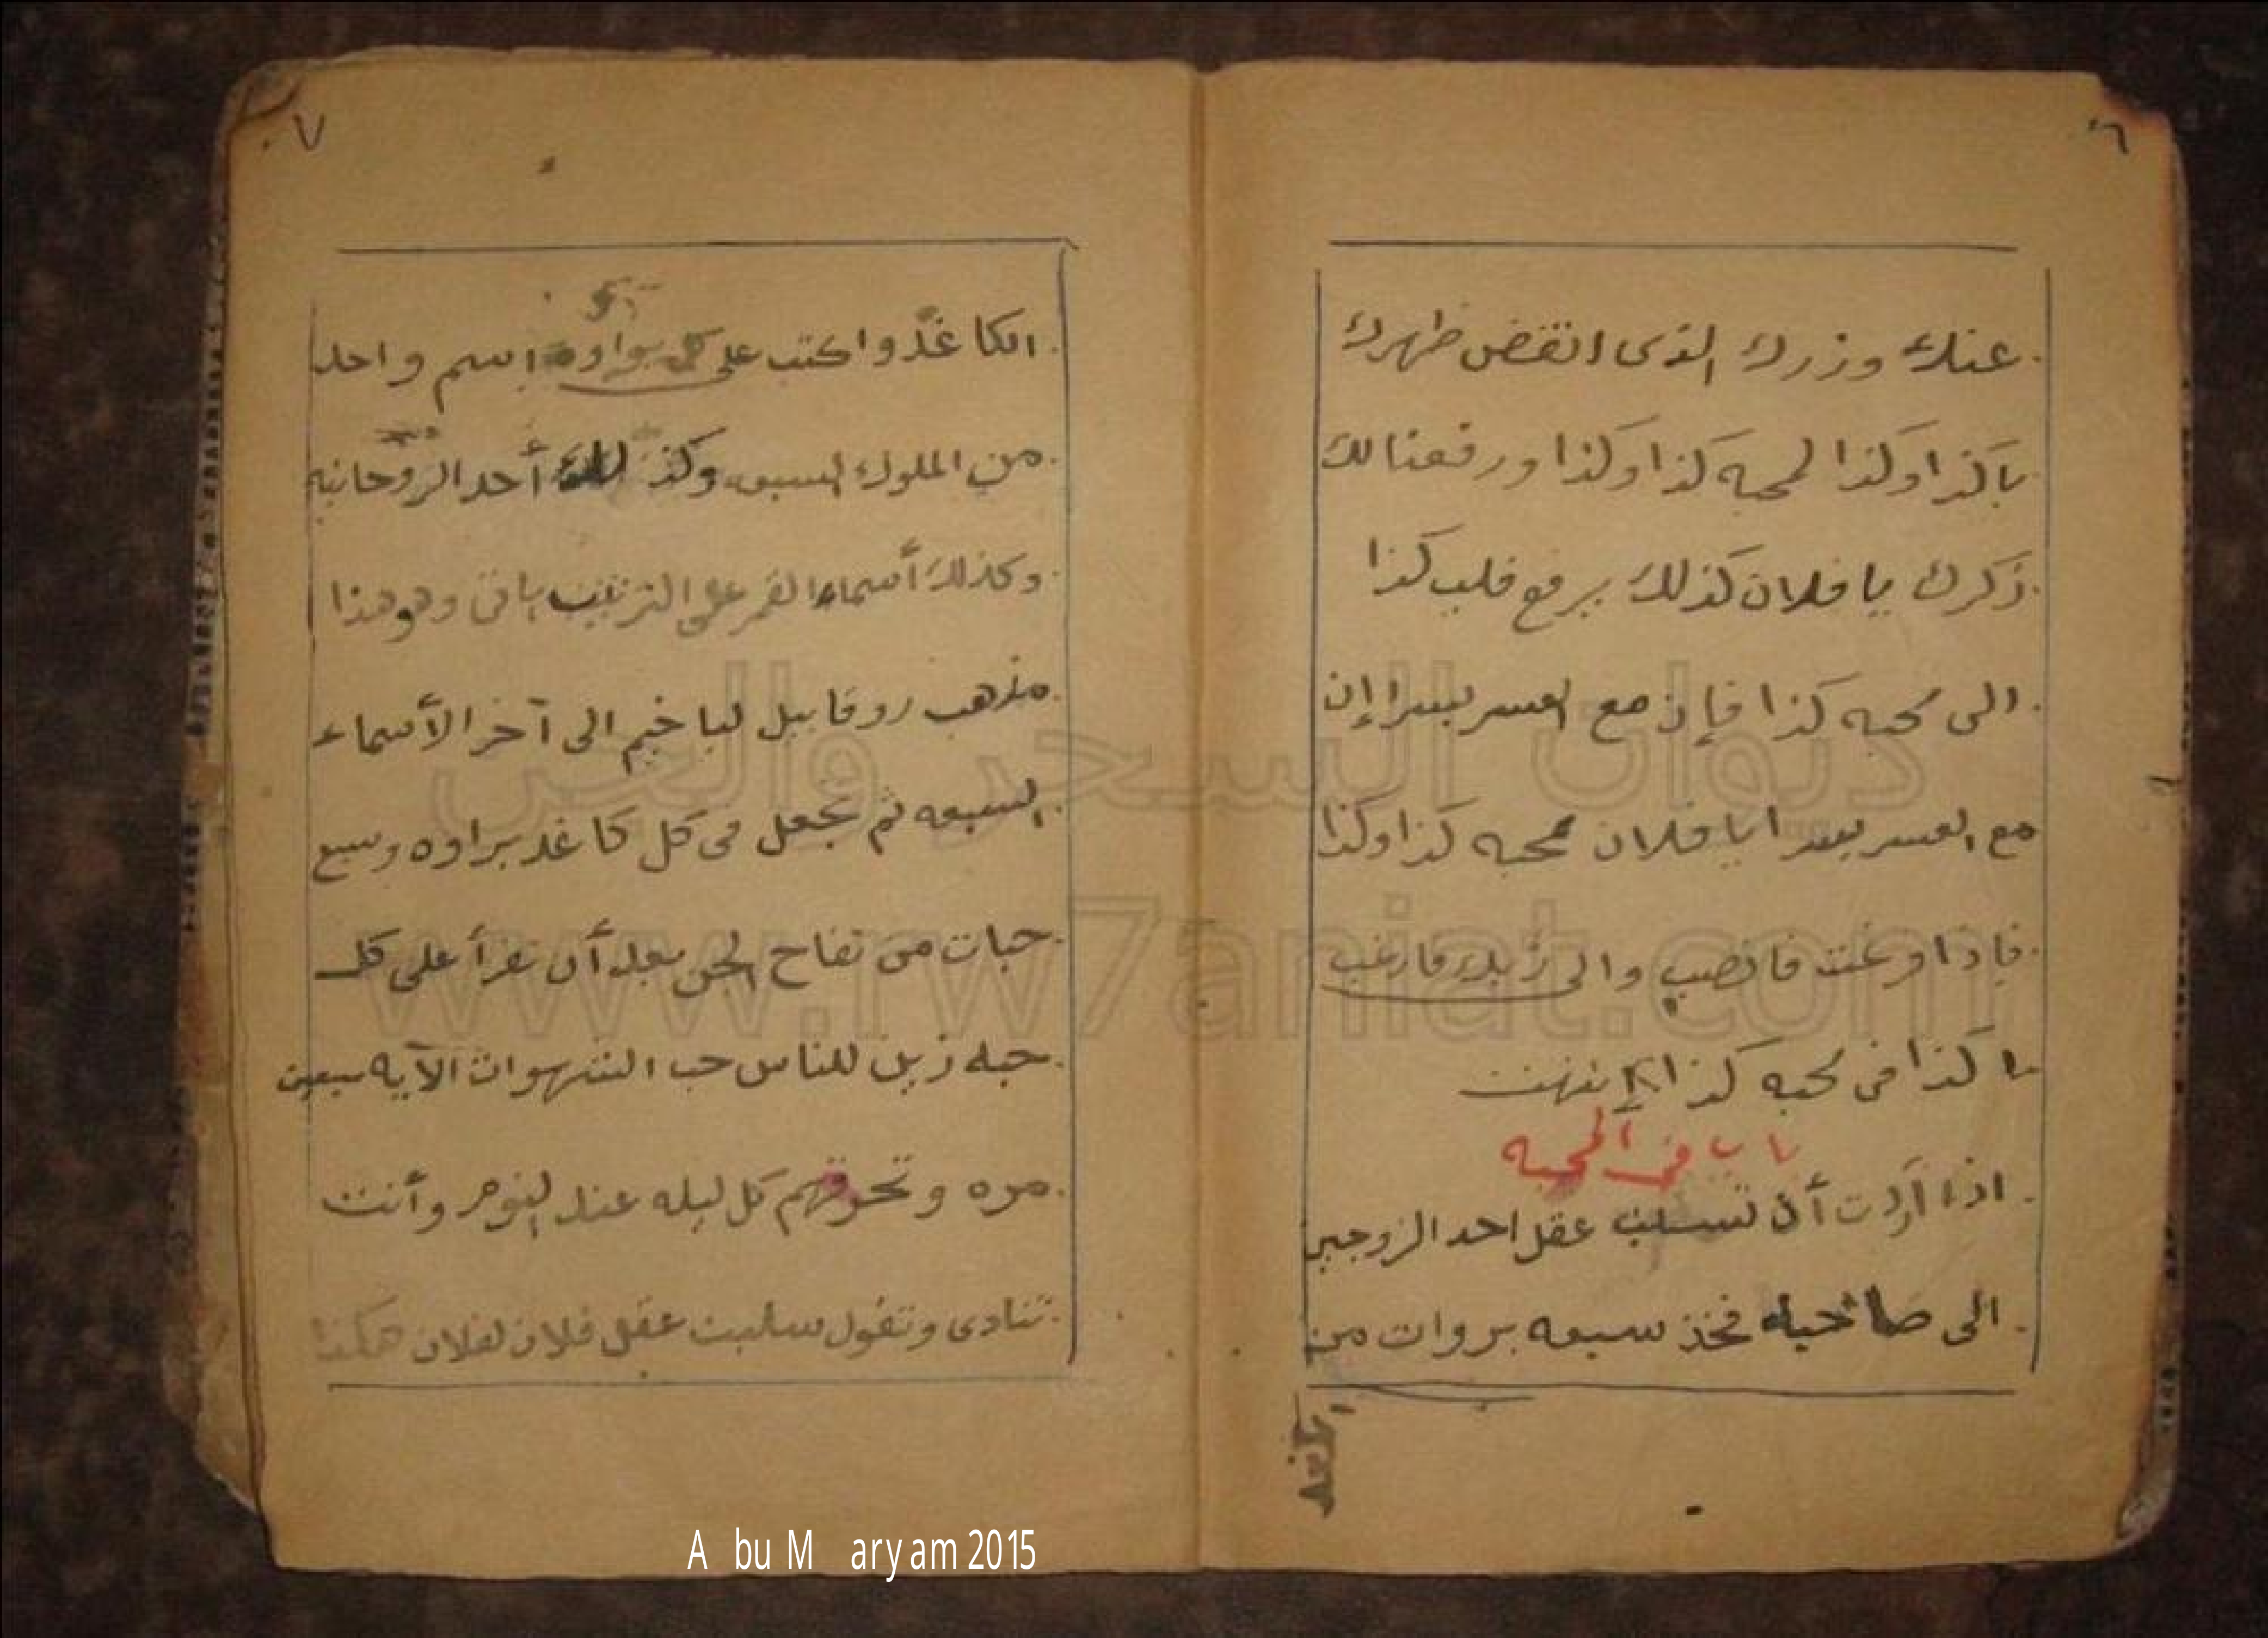 ٦
عنك وزرك الذى انقض ظهرك
يا كذا وكذا لمحبه كذا وكذا ورفعنا لك
ذكرك يا فلان كذلك يرفع قلب كذا
الى محبه كذا فإن مع العسر يسرا إن
مع العسر يسرا يا فلان محبه كذا وكذا
فإذا فرغت فانصب والى ربك فارغب
يا كذا فى محبه كذا انتهت
باب فى المحبه
اذا أردت أن تسلب عقل احد الزوجين
الى صاحبه فخذ سبعه بروات من
الكاغد
٧
الكاغد واكتب على كل براوه اسم واحد
من الملوك السبعه وكذلك أحد الروحانيه
وكذلك أسماء القمر على الترتيب وهو هذا
مذهب روقاييل لياخيم الى آخر الأسماء
السبعه ثم تجعل فى كل كاغد براوه وسبع
حبات من تفاح الجن بعد أن تقرأ على كل
حبه زين للناس حب الشهوات الآيه سبعين
مره وتحرقهم كل ليله عند النوم وأنت
تنادى وتقول سلبت عقل فلان لفلان هكذا
ديوان السحر والجن
www.rw7aniat.com
Abu Maryam 2015